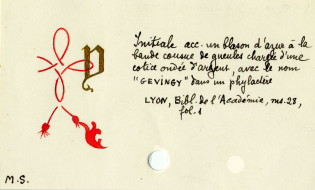 Initiale acc. un blason d'azur à la
bande cousue de gueules chargée d'une
cotice ondée d'argent, avec le nom
"GEVINGY" dans un phylactère
LYON, Bibl. de l'Académie, ms. 28,
fol. 1
M.S.